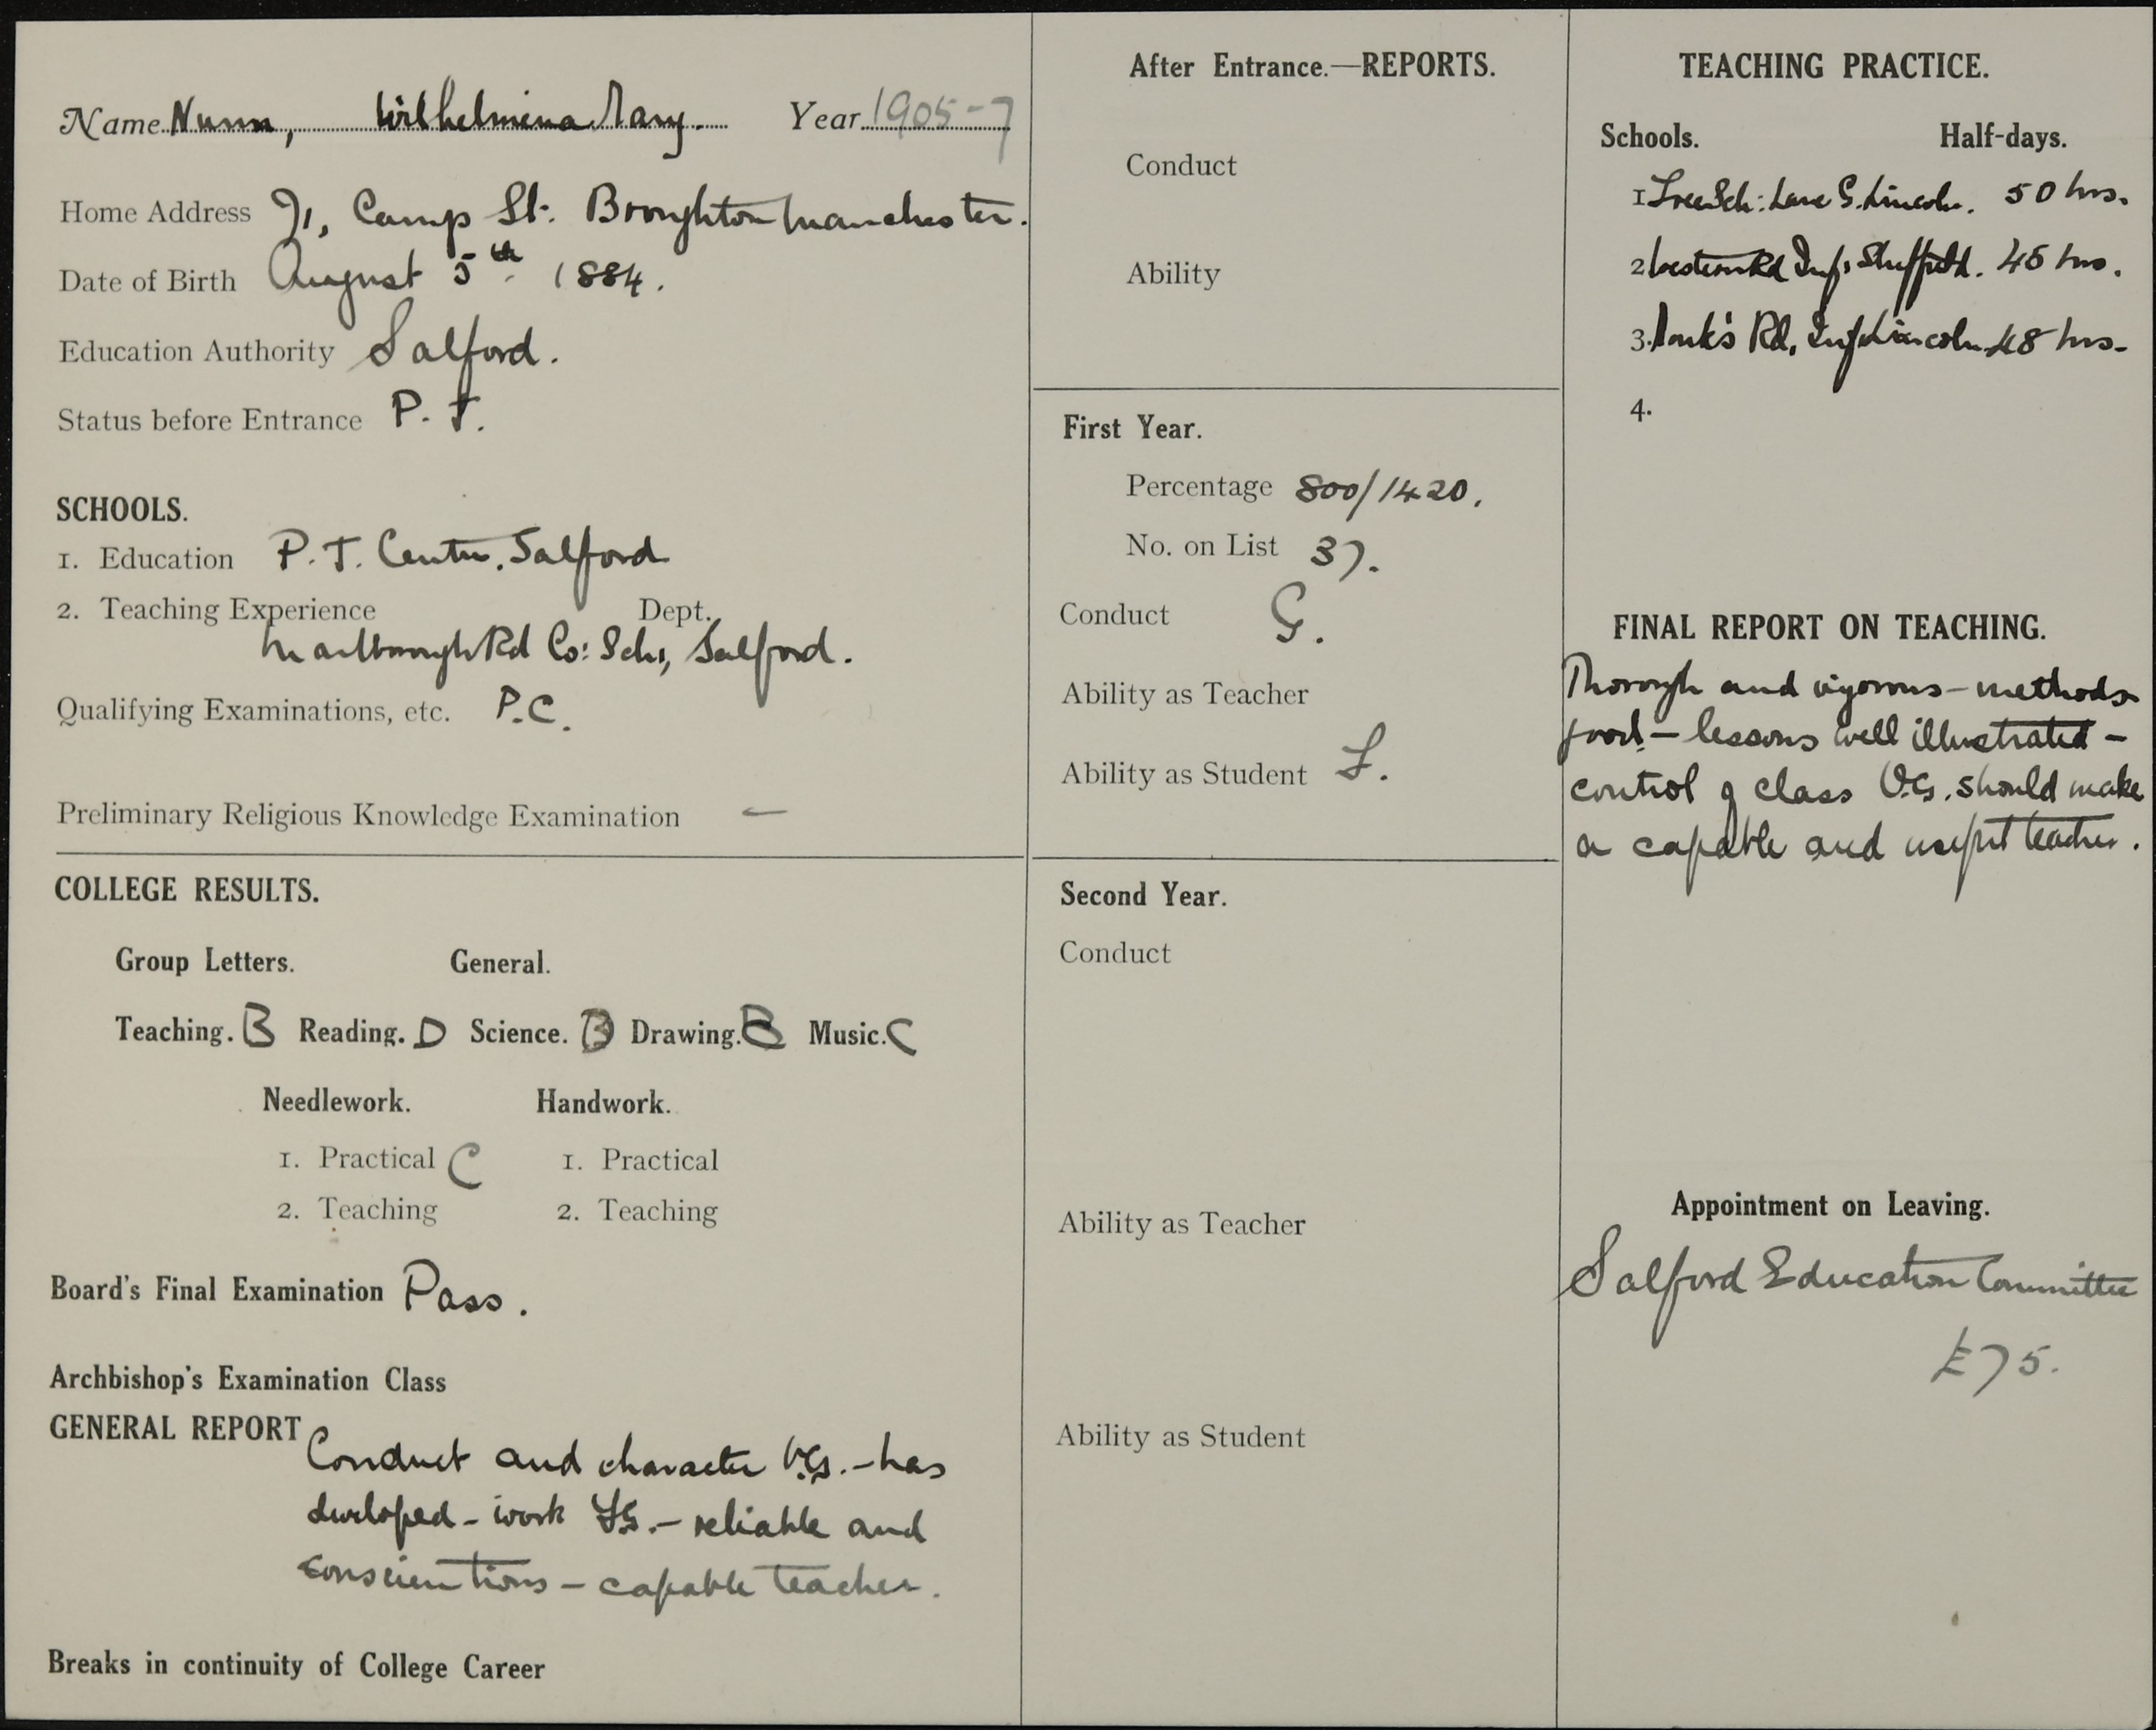 Name Nunn, Wilhelmina Mary. Year 1905-7
Home Address 71, Camp St. Broughton Manchester.
Date of Birth August 5th 1884.
Education Authority Salford.
Status before Entrance P.T.
SCHOOLS.
1. Education P.T. Centre, Salford
2. Teaching Experience Dept.
Marlborough Rd Co: Sch:, Salford.
Qualifying Examinations, etc. P.C.
Preliminary Religious Knowledge Examination —
COLLEGE RESULTS.
Group Letters. General.
Teaching. B Reading. D Science. B Drawing. B Music. C
Needlework. Handwork.
1. Practical C 1. Practical
2. Teaching 2. Teaching
Board's Final Examination Pass.
Archbishop's Examination Class
GENERAL REPORT Conduct and character V.G. - has
developed - work F.G. - reliable and
conscientious - capable teacher.
Breaks in continuity of College Career
After Entrance.—REPORTS.
Conduct
Ability
First Year.
Percentage 800/1420.
No. on List 37.
Conduct G.
Ability as Teacher
Ability as Student F.
Second Year.
Conduct
Ability as Teacher
Ability as Student
TEACHING PRACTICE.
Schools. Half-days.
1 Free Sch: Lane G. Lincoln. 50 hrs.
2 Western Rd Inf: Sheffield. 45 hrs.
3. Monk's Rd, Inf Lincoln 48 hrs.
4.
FINAL REPORT ON TEACHING.
Thorough and vigorous - methods
good - lessons well illustrated -
control of class V.G. should make
a capable and useful teacher.
Appointment on Leaving.
Salford Education Committee
£75.